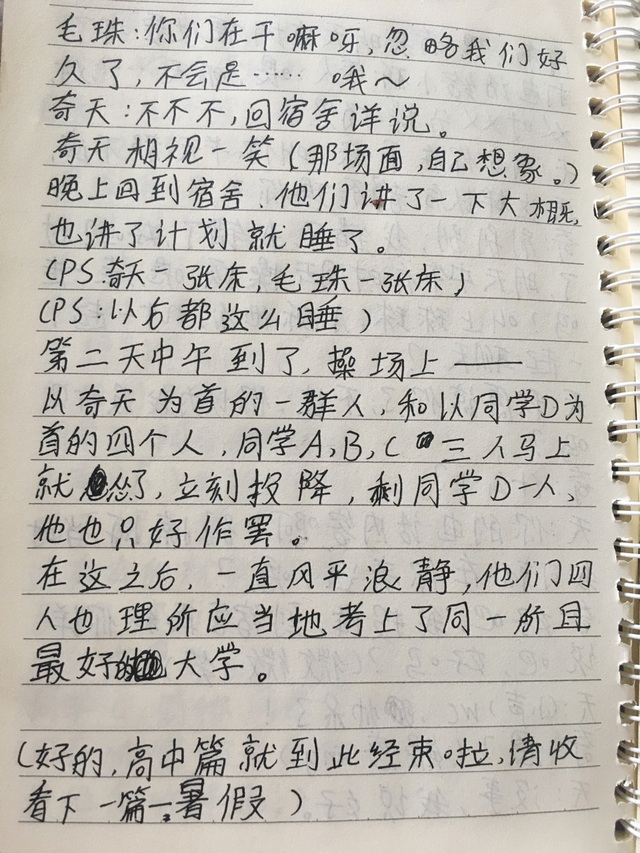 毛珠:你们在干嘛呀,忽略我们好
久了,不会是…… 哦~
奇天:不不不,回宿舍详说。
奇天相视一笑(那场面,自己想象。)
晚上回到宿舍,他们讲了一下大概,
也讲了计划就睡了。
(PS:奇天一张床,毛珠一张床)
(PS:以后都这么睡)
第二天中午到了,操场上——
以奇天为首的一群人,和以同学D为
首的四个人,同学A,B,C三人马上
就怂了,立刻投降,剩同学D一人,
他也只好作罢。
在这之后,一直风平浪静,他们四
人也理所应当地考上了同一所且
最好的大学。
(好的,高中篇就到此经束啦,请收
看下一篇—暑假)